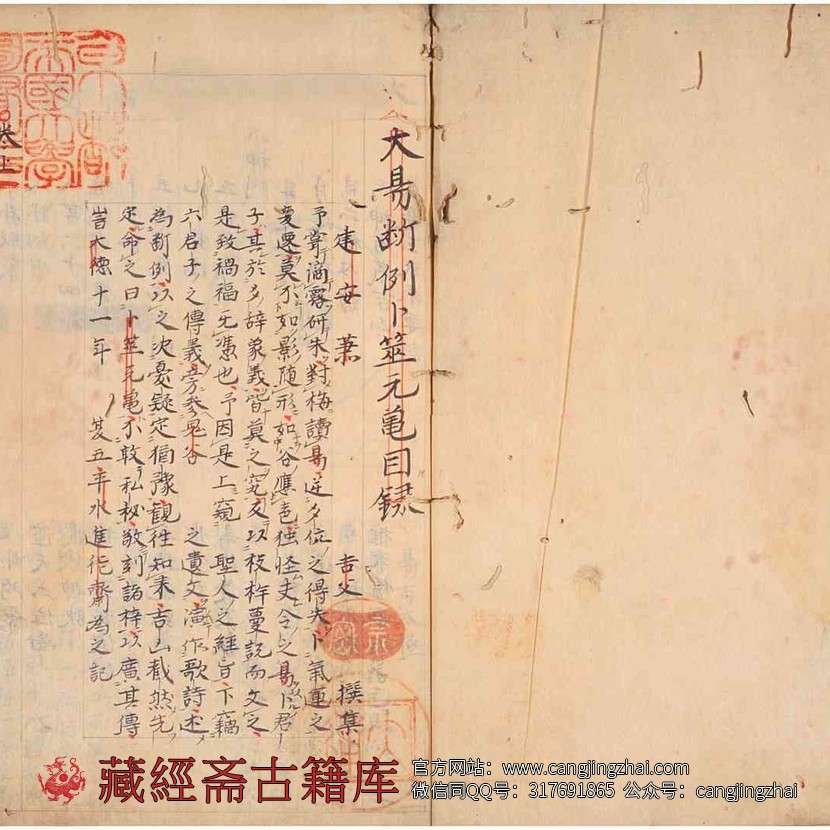 大易斷例卜筮元亀目録
建安 蕭 吉父 撰集
予嘗滴露研朱對梅讀易逆爻位之得失卜氣運之
憂虞莫不如影随形如谷應声独怪夫今之易卜君
子其於爻辞象義皆莫之究反以枝杵蔓説而文之
是致禍福无憑也予因是上窺 聖人之經旨下竊
六君子之傳義旁参鬼谷 之遺文演作歌詩述
為断例以之决憂疑定猶豫観徃知来吉凶截然先
定命之曰卜筮元亀不敢私秘敬刻諸梓以廣其傳
旹大德十一年 笈五年水進 齋為之記
卷上
藏經斋古籍库
官方网站：www.cangjingzhai.com
微信同QQ号：317691865 公众号：cangjingzhai